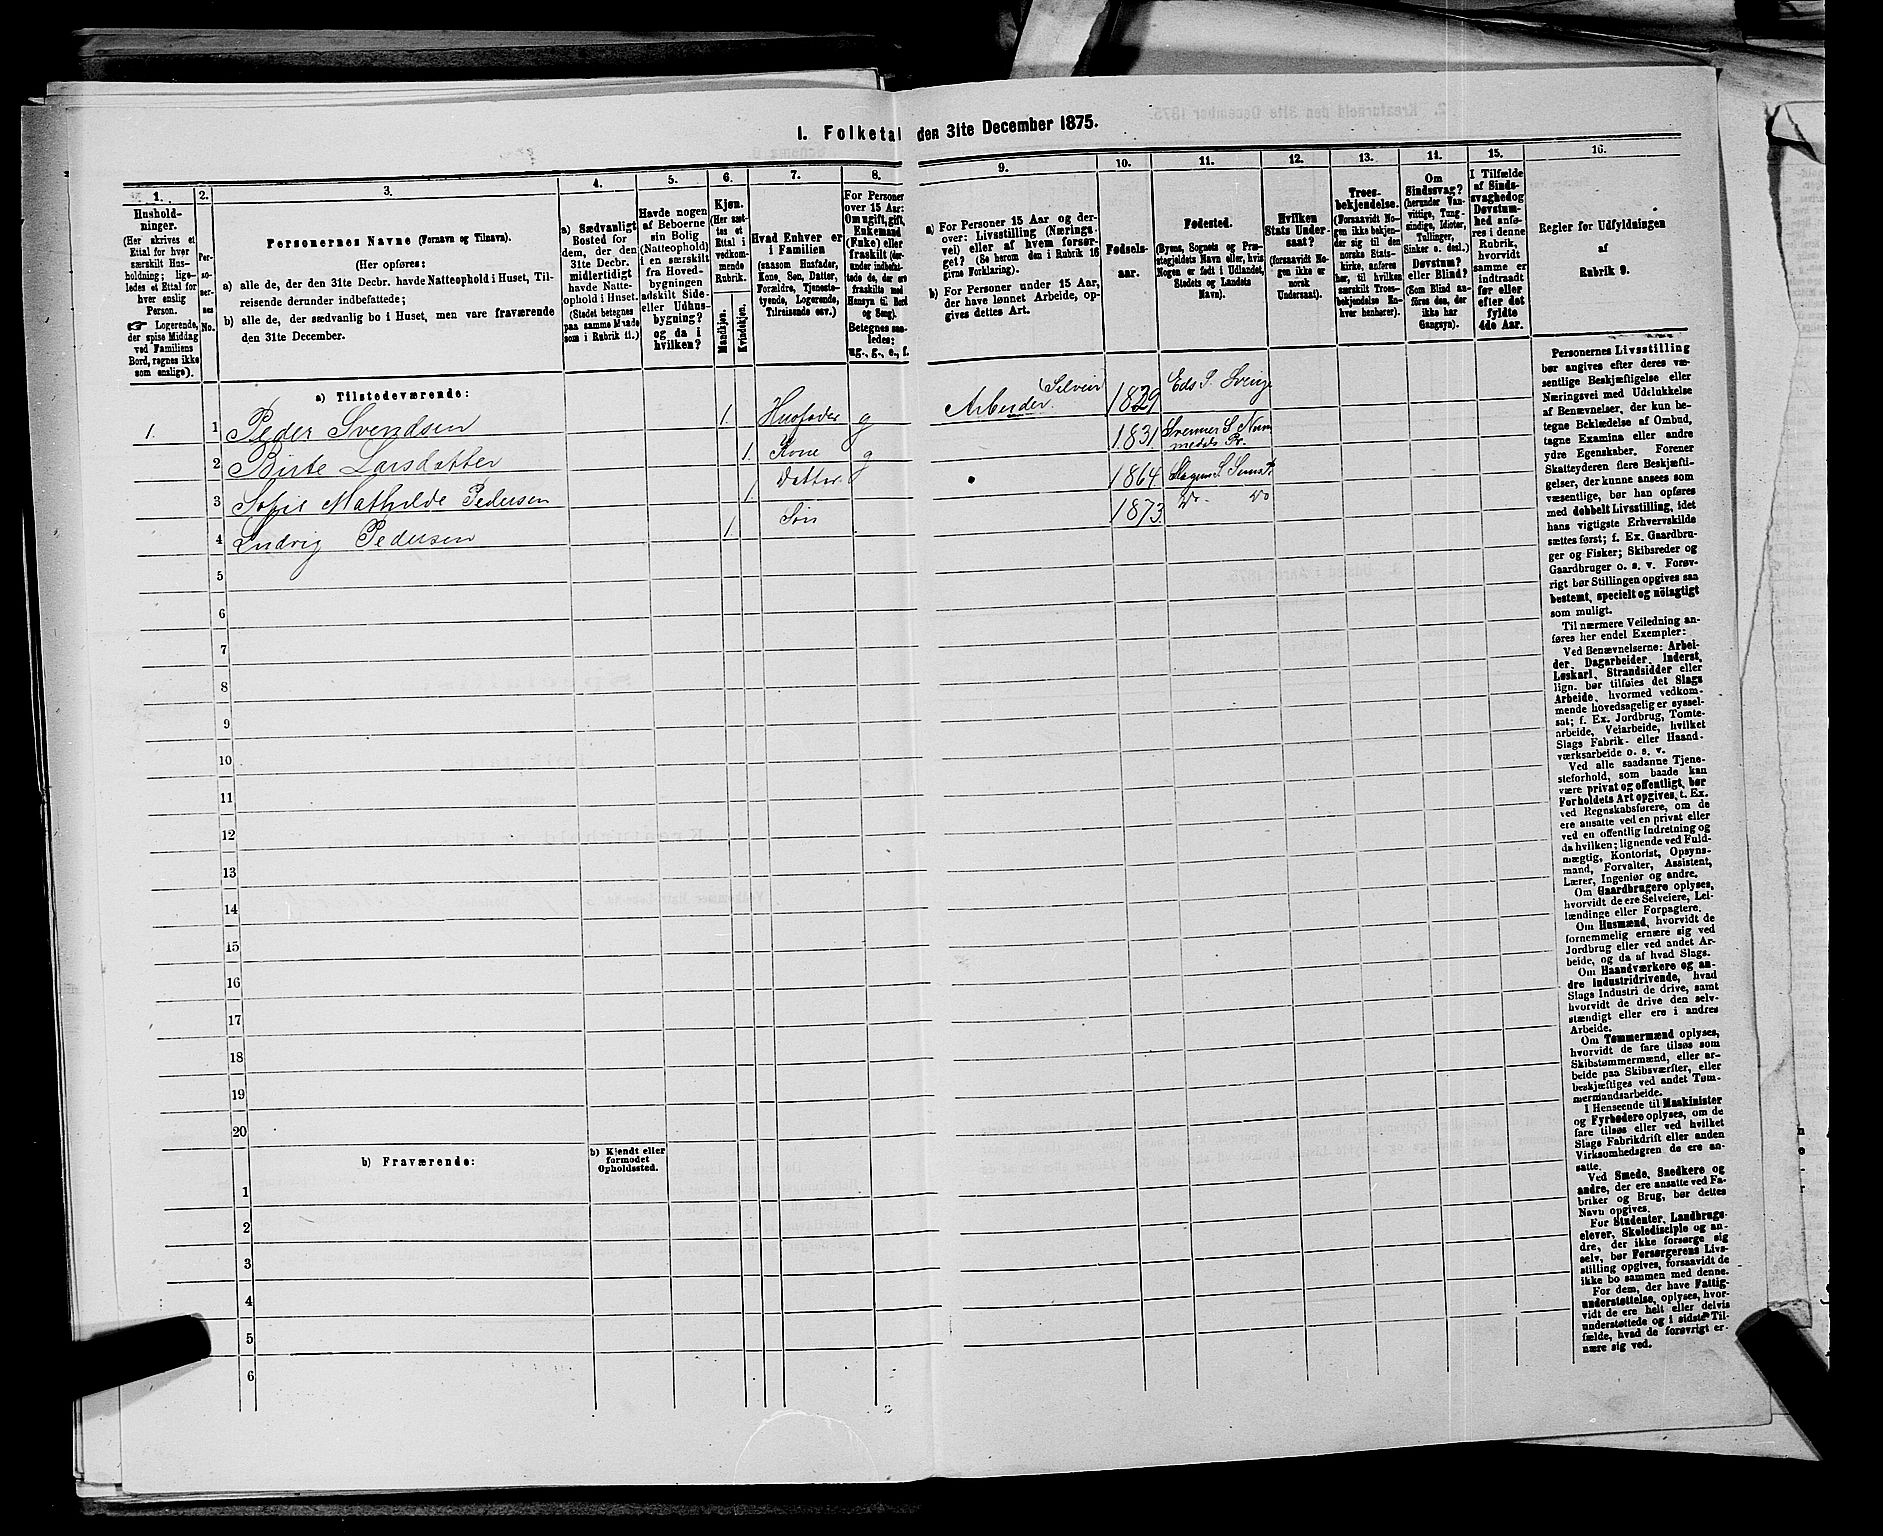 1. Folketal den 31te December 1875.
1.
Hushold-
ninger.
(Her skrives et
Ettal for hver
særskilt Hus-
holdning; lige-
ledes et Ettal for
hver enslig
Person.
Logerende,
der spise Middag
ved Familiens
Bord, regnes ikke
som enslige).
2.
Per-
so-
ner-
nes
No.
3.
Personernes Navne (Fornavn og Tilnavn).
(Her opføres:
a) alle de, der den 31te Decbr. havde Natteophold i Huset, Til-
reisende derunder indbefattede;
b) alle de, der sædvanlig bo i Huset, men vare fraværende
den 31te December.
4.
a) Sædvanligt
Bosted for
dem, der den
31te Decbr.
midlertidigt
havde Natte-
ophold i Huset.
(Stedet betegnes
paa samme Maade
som i Rubrik 11.)
5.
Havde nogen
af Beboerne
sin Bolig
(Natteophold)
i en særskilt
fra Hoved-
bygningen
adskilt Side-
eller Udhus-
bygning?
og da i
hvilken?
6.
Kjøn.
(Her sæt-
tes et
Ettal i
vedkom-
mende
Rubrik.
Mandkjøn.
Kvindekjøn.
7.
Hvad Enhver er
i Familien
(saasom Husfader,
Kone, Søn, Datter,
Forældre, Tjeneste-
tyende, Logerende,
Tilreisende osv.)
8.
For Personer
over 15 Aar:
Om ugift, gift,
Enkemand
(Enke) eller
fraskilt (der-
under indbefat-
tede de, der ere
fraskilte med
Hensyn til Bord
og Seng).
Betegnes saa-
ledes:
ug., g., e., f.
9.
a) For Personer 15 Aar og der-
over: Livsstilling (Nærings-
vei) eller af hvem forsør-
get? (Se herom den i Rubrik 16
givne Forklaring).
b) For Personer under 15 Aar,
der have lønnet Arbeide, op-
gives dettes Art.
10.
Fødsels-
aar.
11.
Fødested.
(Byens, Sognets og Præ-
stegjeldets Navn eller, hvis
Nogen er født i Udlandet,
Stedets og Landets
Navn).
12.
Hvilken
Stats Under-
saat?
(forsaavidt No-
gen ikke er
norsk
Undersaat).
13.
Troes-
bekjendelse.
(Forsaavidt No-
gen ikke bekjen-
der sig til den
norske Stats-
kirke, anføres
her, til hvilken
særskilt Troes-
bekjendelse En-
hver henhører).
14.
Om
Sindssvag?
(herunder Van-
vittige, Tung-
sindige, Idioter,
Tullinger,
Sinker o. desl.)
Døvstum?
eller Blind?
(Som Blind an-
føres den, der
ikke har
Gangsyn).
15.
I Tilfælde
af Sinds-
svaghed og
Døvstum-
hed anfø-
res i denne
Rubrik,
hvorvidt
samme er
indtraadt
før eller
efter det
fyldte
4de Aar.
16.
Regler for Udfyldningen
af
Rubrik 9.
a) Tilstedeværende:
1. 1 Peder Svendsen 1. Husfader g Arbeider. Selveier 1829
2 Birte Larsdatter 1. Kone g 1831
3 Sofie Mathilde Pedersen 1 Datter 1864 Slagens S.
4 Ludvig Pedersen 1. Søn 1873. Do Do
5
6
7
8
9
10
11
12
13
14
15
16
17
18
19
20
b) Fraværende:
b) Kjendt eller
formodet
Opholdssted.
1
2
3
4
5
6
Personernes Livsstilling
bør angives efter deres væ-
sentlige Beskjæftigelse eller
Næringsvei med Udelukkelse
af Benævnelser, der kun be-
tegne Beklædelse af Ombud,
tagne Examina eller andre
ydre Egenskaber. Forener
Skatteyderen flere Beskjæfti-
gelser, der kunne ansees som
væsentlige, bør han opføres
med dobbelt Livsstilling, idet
hans vigtigste Erhvervskilde
sættes først; f. Ex. Gaardbru-
ger og Fisker; Skibsreder og
Gaardbruger o. s. v. Forøv-
rigt bør Stillingen opgives saa
bestemt, specielt og nöiagtigt
som muligt.
Til nærmere Veiledning an-
føres her endel Exempler:
Ved Benævnelserne: Arbei-
der, Dagarbeider, Inderst,
Løskarl, Strandsidder eller
lign. bør tilføies det Slags
Arbeide, hvormed vedkom-
mende hovedsagelig er syssel-
sat; f. Ex. Jordbrug, Tomte-
arbeide, Veiarbeide, hvilket
Slags Fabrik- eller Haand-
værksarbeide o. s. v.
Ved alle saadanne Tjene-
steforhold, som baade kan
være privat og offentligt, bør
Forholdets Art opgives, t. Ex.
ved Regnskabsførere, om de
ere ansatte ved en privat eller
ved en offentlig Indretning og
da hvilken; lignende ved Fuld-
mægtig, Kontorist, Opsyns-
mand, Forvalter, Assistent,
Lærer, Ingeniør og andre.
Om Gaardbrugere oplyses,
hvorvidt de ere Selveiere, Lei-
lændinge eller Forpagtere.
Om Husmænd, hvorvidt de
fornemmelig ernære sig ved
Jordbrug eller ved andet Ar-
beide, og da af hvad Slags.
Om Haandværkere og an-
dre Industridrivende, hvad
Slags Industri de drive, samt
hvorvidt de drive den selv-
stændigt eller ere i andres
Arbeide.
Om Tømmermænd oplyses,
hvorvidt de fare tilsøs som
Skibstømmermænd, eller ar-
beide paa Skibsværfter, eller
beskjæftiges ved andet Tøm-
mermandsarbeide.
I Henseende til Maskinister
og Fyrbødere oplyses, om de
fare tilsøs eller ved hvilket
Slags Fabrikdrift eller anden
Virksomhedsgren de ere an-
satte.
Ved Smede, Snedkere og
andre, der ere ansatte ved Fa-
briker og Brug, bør dettes
Navn opgives.
For Studenter, Landbrugs-
elever, Skoledisciple og an-
dre, der ikke forsørge sig
selv, bør Forsørgerens Livs-
stilling opgives, forsaavidt de
ikke bo sammen med denne.
For dem, der have Fattig-
understøttelse, oplyses, hvor-
vidt de ere helt eller delvis
understøttede og i sidste Til-
fælde, hvad de forøvrigt er-
nære sig ved.